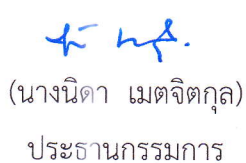 (นางนิดา เมตจิตกุล)
ประธานกรรมการ